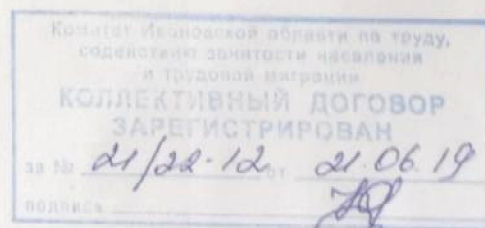 Комитет Ивановской области по труду,
содействию занятости населения
и трудовой миграции
КОЛЛЕКТИВНЫЙ ДОГОВОР
ЗАРЕГИСТРИРОВАН
за № 21/22-12 от 21.06.19
подпись